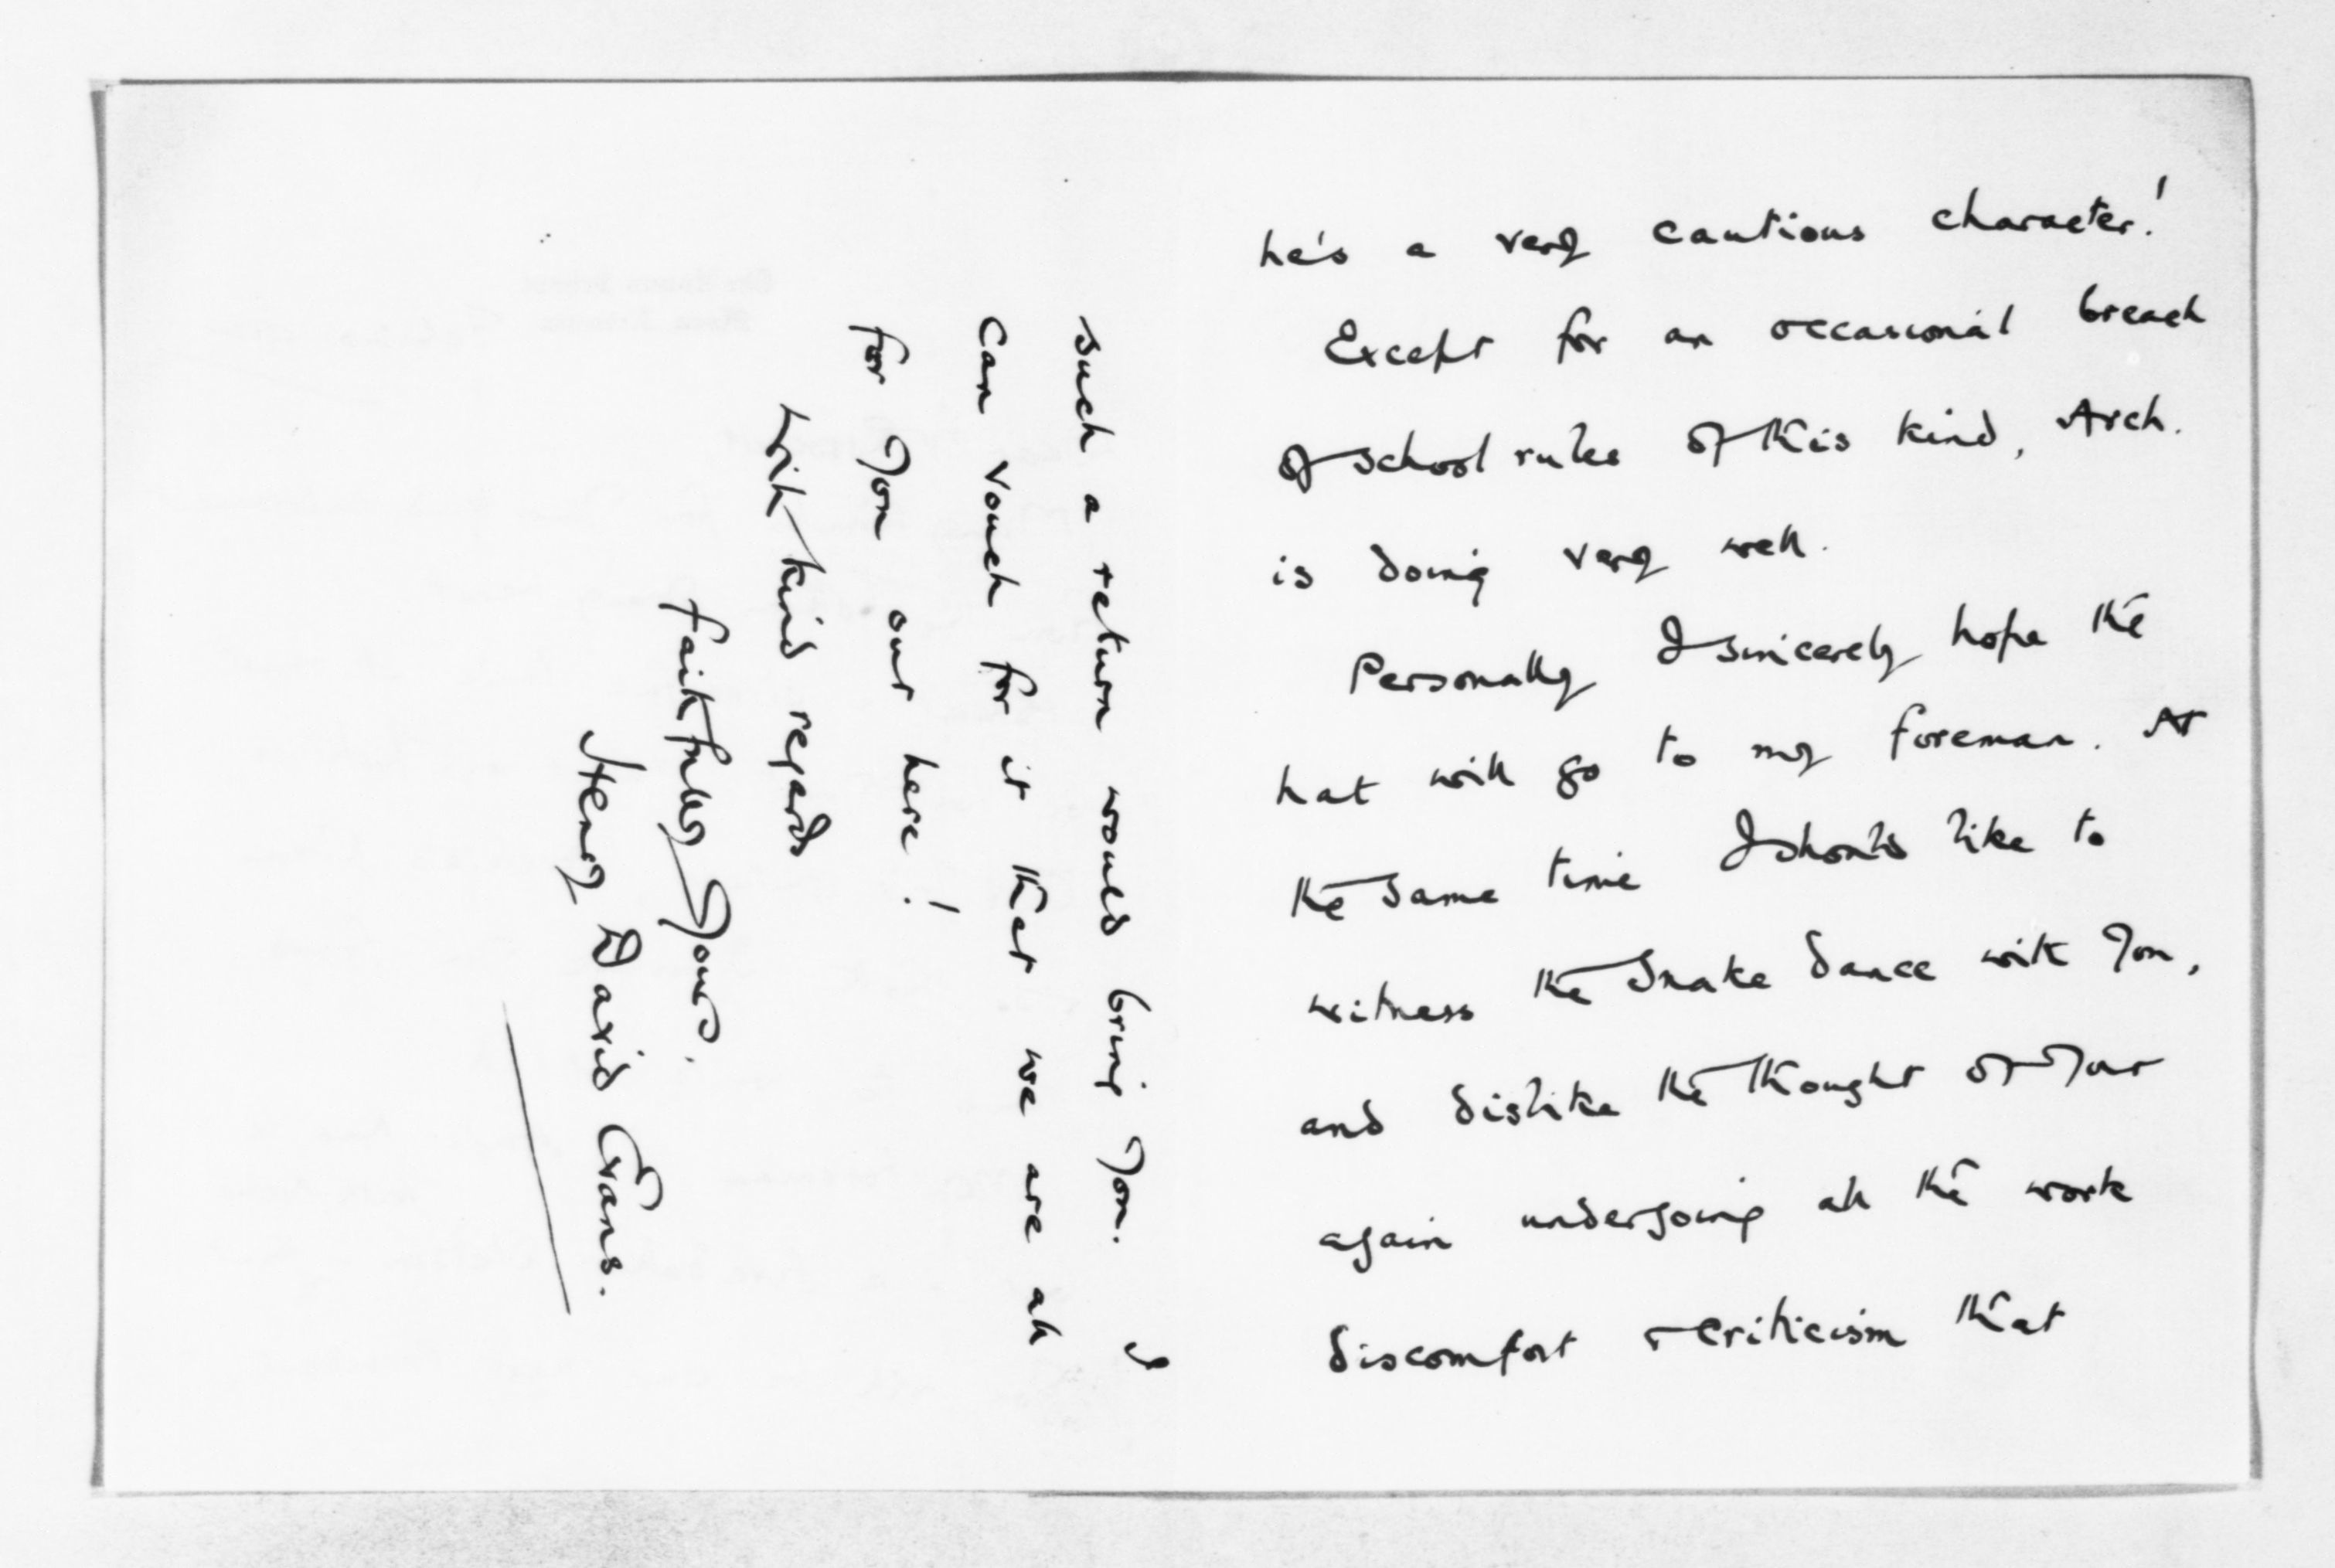 he's a very cautious character!
Except for an occasional breach
of school rules of this kind, Arch.
is doing very well.
Personally I sincerely hope the
hat will go to my foreman. At
the same time I should like to
witness the Snake Dance with you,
and dislike the thought of your
again undergoing all the work
discomfort & criticism that
such a return would bring you. I
can vouch for it that we are all
for you out here!
With kind regards
Faithfully Yours.
Henry David Evans.